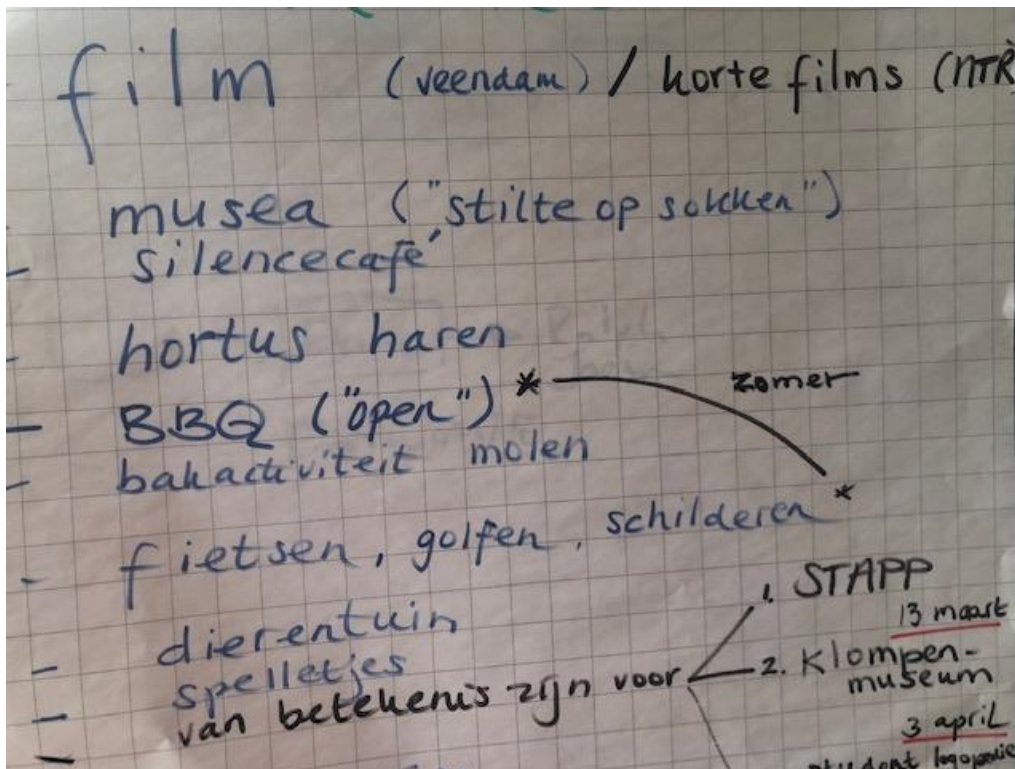 film (veendam) / korte films (NTR)
musea ("stilte op sokken")
- silencecafé
- hortus haren
- BBQ ("open") * zomer
- bakactiviteit molen
- fietsen, golfen, schilderen *
- dierentuin
- spelletjes
- van betekenis zijn voor
1. STAPP
13 maart
2. Klompen-
museum
3 april
student logopedie